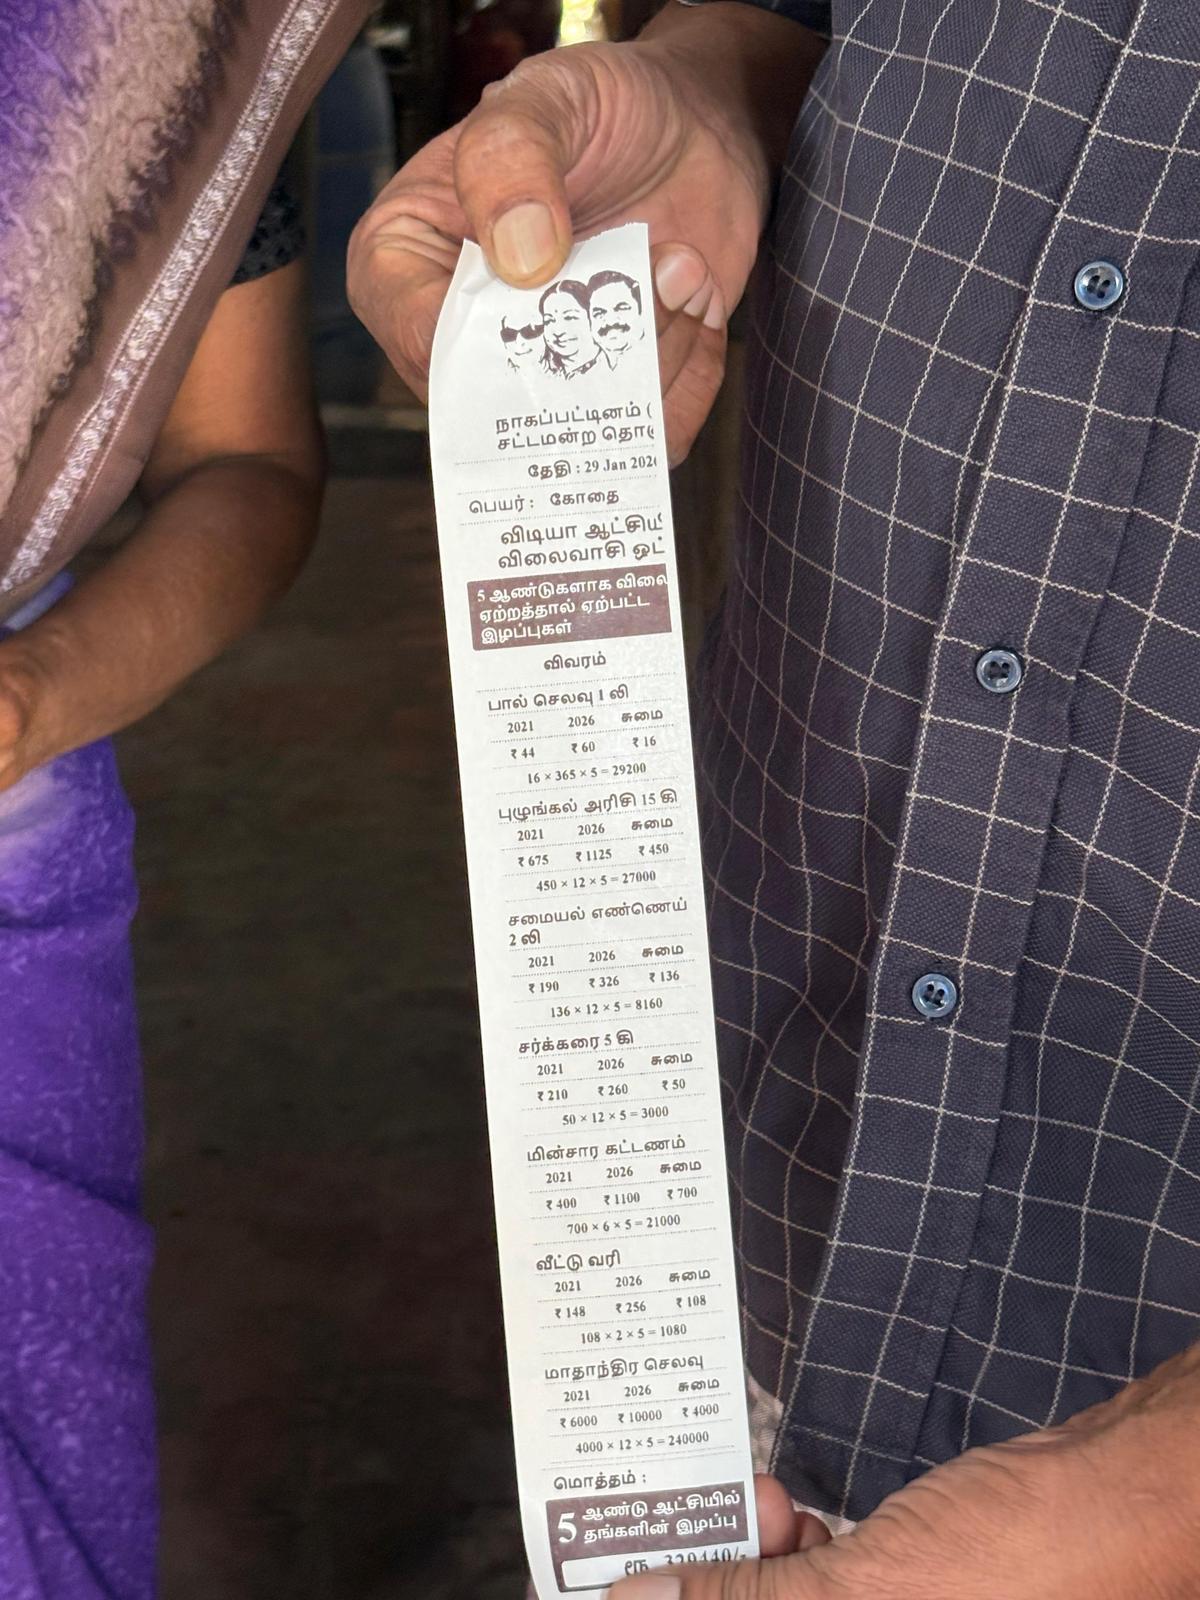 நாகப்பட்டினம் (
சட்டமன்ற
தேதி : 29 Jan
பெயர் : கோதை
விடியா
விலைவாசி
5 ஆண்டுகளாக விலை
ஏற்றத்தால் ஏற்பட்ட
இழப்புகள்
விவரம்
பால் செலவு 1 லி
2021 2026 சுமை
₹ 44 ₹ 60 ₹ 16
16 × 365 × 5 = 29200
புழுங்கல் அரிசி 15 கி
2021 2026 சுமை
₹ 675 ₹ 1125 ₹ 450
450 × 12 × 5 = 27000
சமையல் எண்ணெய்
2 லி
2021 2026 சுமை
₹ 190 ₹ 326 ₹ 136
136 × 12 × 5 = 8160
சர்க்கரை 5 கி
2021 2026 சுமை
₹ 210 ₹ 260 ₹ 50
50 × 12 × 5 = 3000
மின்சார கட்டணம்
2021 2026 சுமை
₹ 400 ₹ 1100 ₹ 700
700 × 6 × 5 = 21000
வீட்டு வரி
2021 2026 சுமை
₹ 148 ₹ 256 ₹ 108
108 × 2 × 5 = 1080
மாதாந்திர செலவு
2021 2026 சுமை
₹ 6000 ₹ 10000 ₹ 4000
4000 × 12 × 5 = 240000
மொத்தம் :
5 ஆண்டு ஆட்சியில்
தங்களின் இழப்பு
ரூ. 329440/-